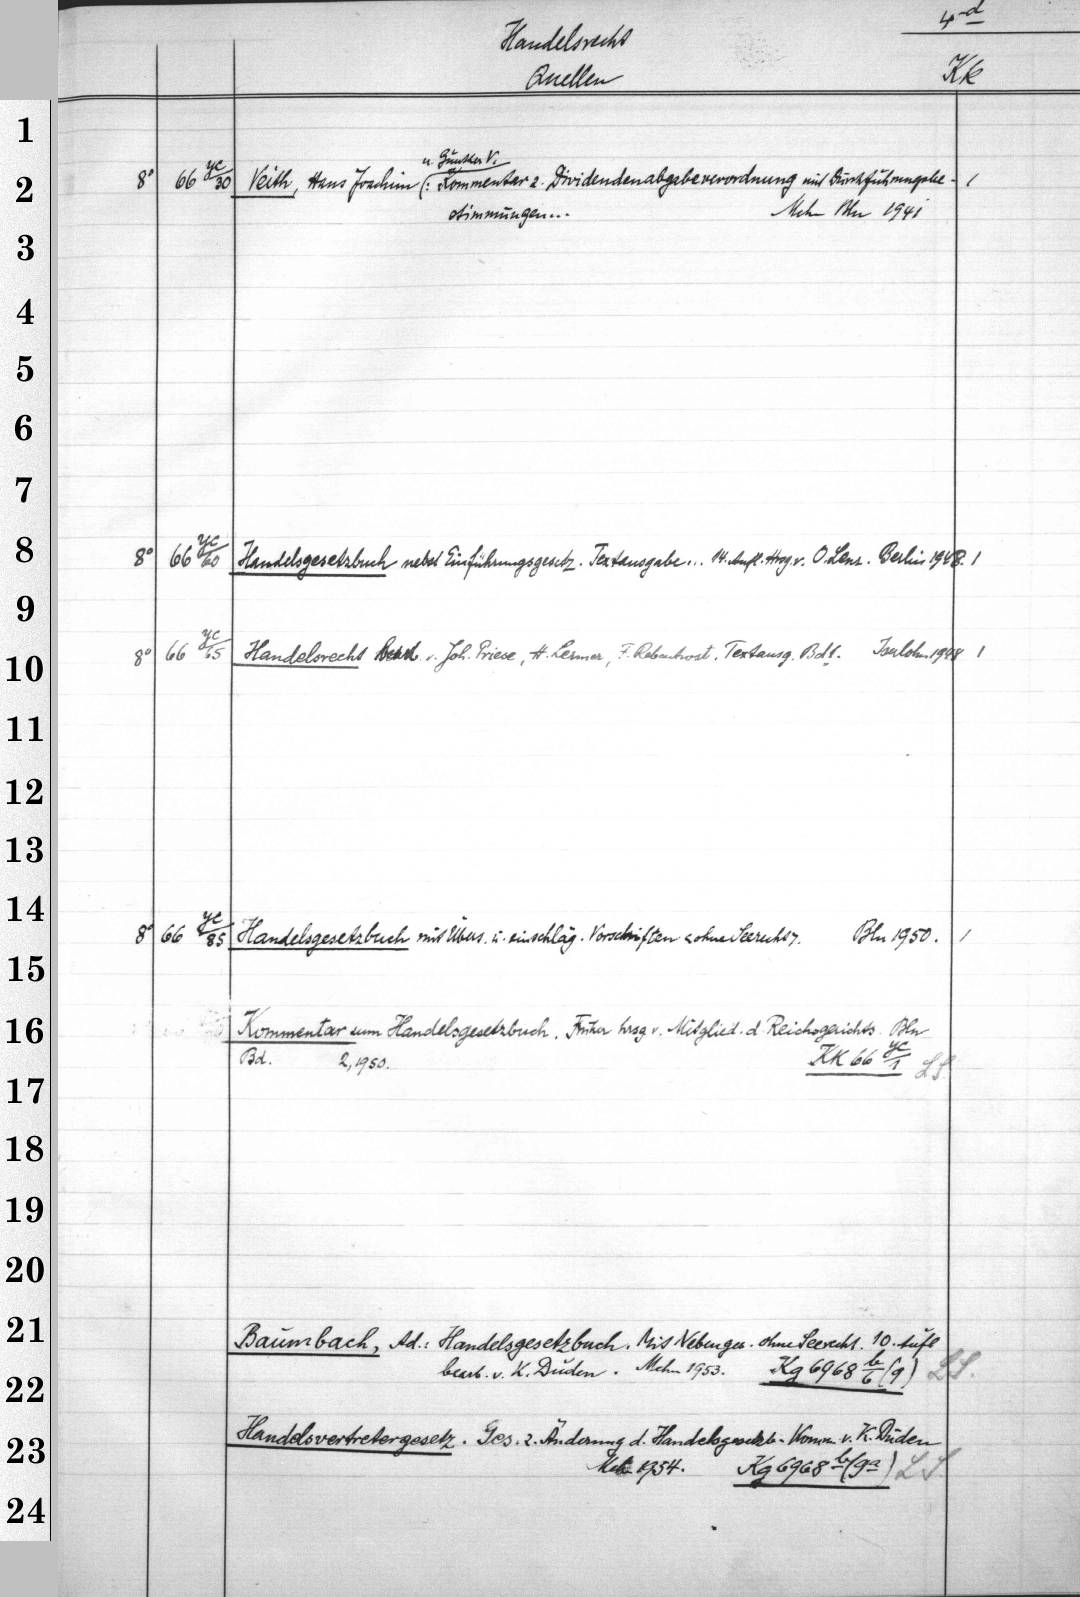 4-d
Handelsrecht
Quellen
Kk
1
u. Günther V.
2 8° 66 yc/30 Veith, Hans Joachim (: Kommentar z. Dividendenabgabeverordnung mit Durchführungsbe- 1
stimmungen... Mchn Bln 1941
3
4
5
6
7
8 8° 66 yc/60 Handelsgesetzbuch nebst Einführungsgesetz. Textausgabe... 14. Aufl. Hrsg v. O. Lenz. Berlin 1948. 1
9
10 8° 66 yc/65 Handelsrecht Bearb. v. Joh. Priese, H. Lermer, F. Rebentrost. Textausg. Bd 1. Iserlohn 1948 1
11
12
13
14 8° 66 yc/85 Handelsgesetzbuch mit Übers. u. einschläg. Vorschriften <ohne Seerecht>. Bln 1950. 1
15
16 Kommentar zum Handelsgesetzbuch. Früher hrsg v. Mitglied. d. Reichsgerichts. Bln
Bd. 2, 1950. KK 66 yc/1 LS.
17
18
19
20
21 Baumbach, Ad.: Handelsgesetzbuch. Mit Nebenges. ohne Seerecht. 10. Aufl
22 bearb. v. K. Duden. Mchn 1953. Kg 6968 b/6 (9) LS.
23 Handelsvertretergesetz. Ges. z. Änderung d. Handelsgesetzb. Komm. v. K. Duden
Mchn 1954. Kg 6968 b (9a) LS.
24